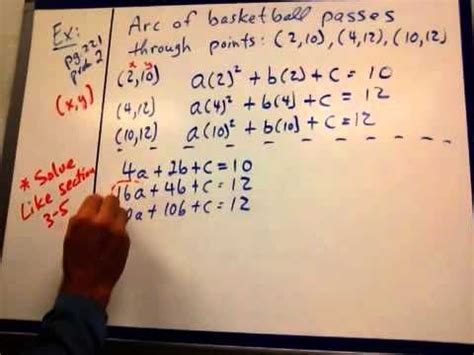 Ex:
pg. 221
prob 2
(x,y)
* Solve
Like section
3-5
Arc of basketball passes
through points: (2,10), (4,12), (10,12)
x y
(2,10) a(2)² + b(2) + c = 10
(4,12) a(4)² + b(4) + c = 12
(10,12) a(10)² + b(10) + c = 12
4a + 2b + c = 10
16a + 4b + c = 12
0a + 10b + c = 12